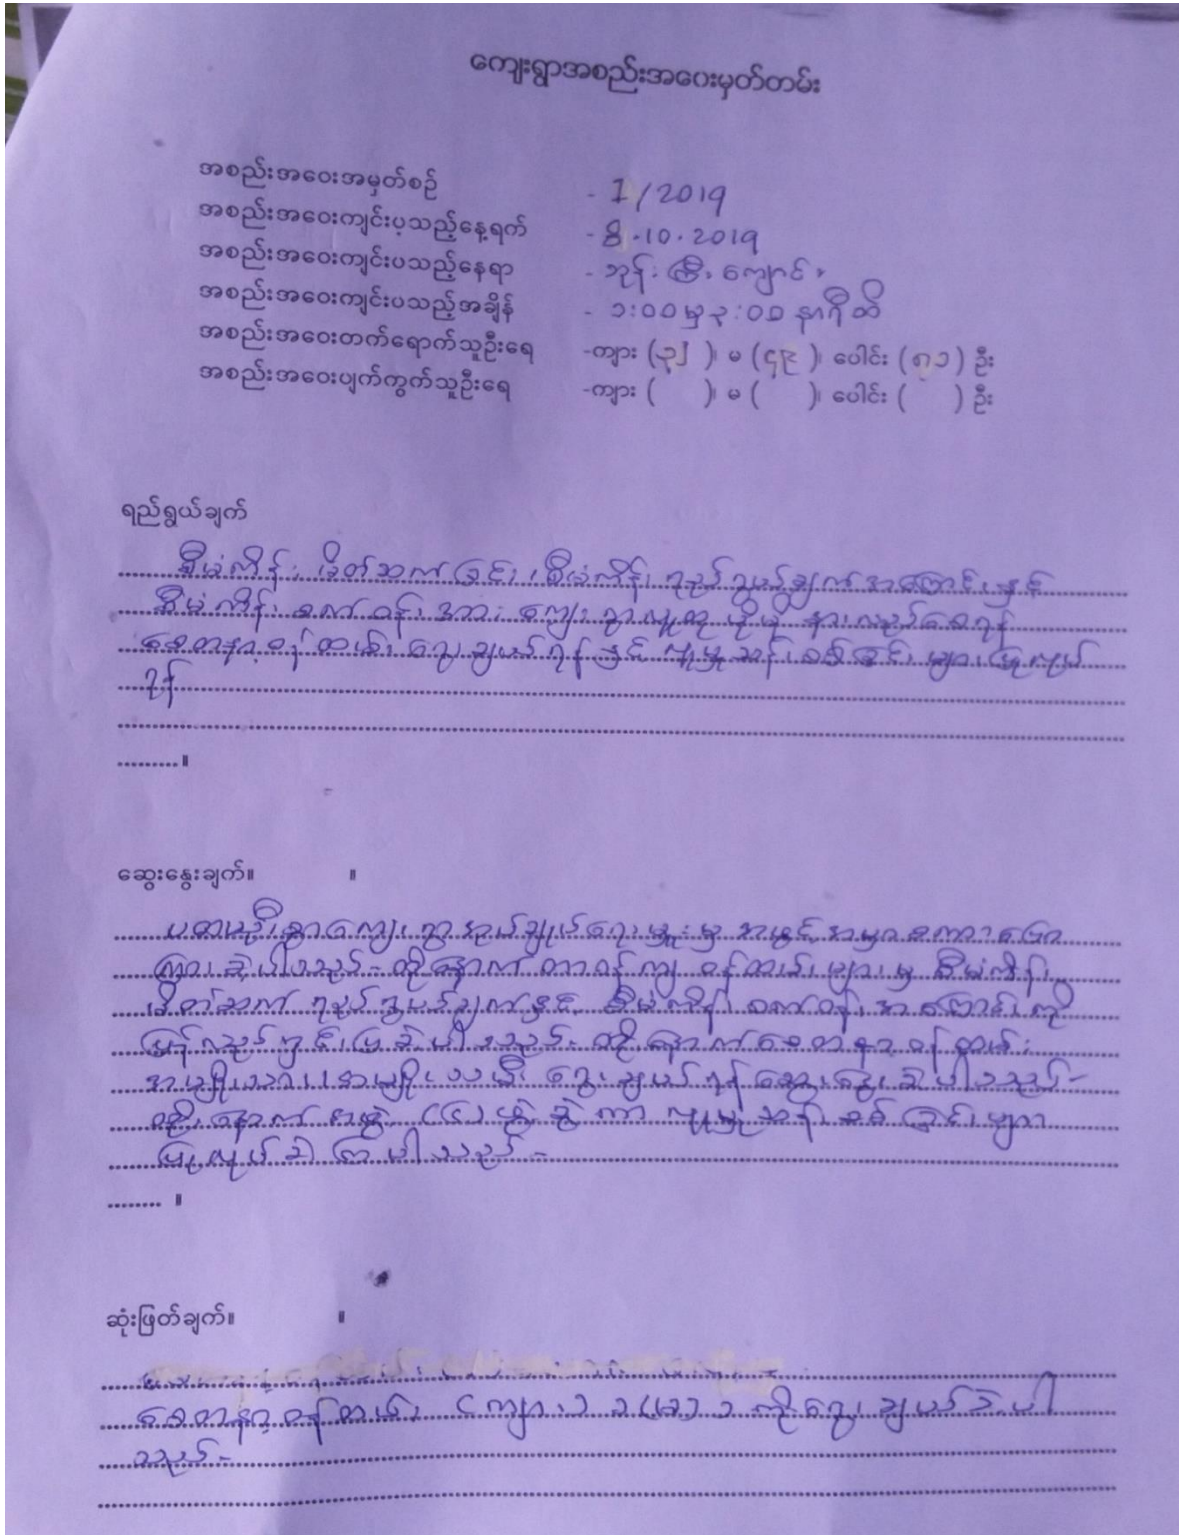 ကျေးရွာအစည်းအဝေးမှတ်တမ်း
အစည်းအဝေးအမှတ်စဉ် - 1/2019
အစည်းအဝေးကျင်းပ့သည့်နေ့ရက် - 8.10.2019
အစည်းအဝေးကျင်းပသည့်နေရာ - ဘုန်းကြီးကျောင်း
အစည်းအဝေးကျင်းပသည့်အချိန် - ၁:၀၀ မှ ၃:၀၀ နာရီထိ
အစည်းအဝေးတက်ရောက်သူဦးရေ -ကျား (၃၂)၊ မ (၄၉)၊ ပေါင်း (၈၁) ဦး
အစည်းအဝေးပျက်ကွက်သူဦးရေ -ကျား ( )၊ မ ( )၊ ပေါင်း ( ) ဦး
ရည်ရွယ်ချက်
စီမံကိန်း မိတ်ဆက်ခြင်း၊ စီမံကိန်း ရည်ရွယ်ချက်အကြောင်းနှင့်
စီမံကိန်း ကျေးရွာလူထု ပိုမို နားလည်စေရန်
စေတနာ့ဝန်ထမ်း ရွေးချယ်ရန်နှင့် လူမှုဆန်းစစ်ခြင်းများ ပြုလုပ်
ရန်
။
ဆွေးနွေးချက်။ ။
ပထမဦးစွာ ကျေးရွာအုပ်ချုပ်ရေးမှူးမှ အဖွင့်အမှာစကားပြော
ကြားခဲ့ပါသည်- ထို့နောက် တာဝန်ကျ ဝန်ထမ်းများမှ စီမံကိန်း
မိတ်ဆက် ရည်ရွယ်ချက်နှင့် စီမံကိန်း အကြောင်းကို
ရှင်းပြခဲ့ပါသည်- ထို့နောက် စေတနာ့ဝန်ထမ်း
အမျိုးသား၊ အမျိုးသမီး ရွေးချယ်ရန် ဆွေးနွေးခဲ့ပါသည်-
ထို့နောက် အဖွဲ့ (၄) ဖွဲ့ ခွဲကာ လူမှုဆန်းစစ်ခြင်းများ
ပြုလုပ်ခဲ့ကြပါသည်-
။
ဆုံးဖြတ်ချက်။ ။
စေတနာ့ဝန်ထမ်း (ကျား) ၁ (မ) ၁ ကို ရွေးချယ်ခဲ့ပါ
သည်-